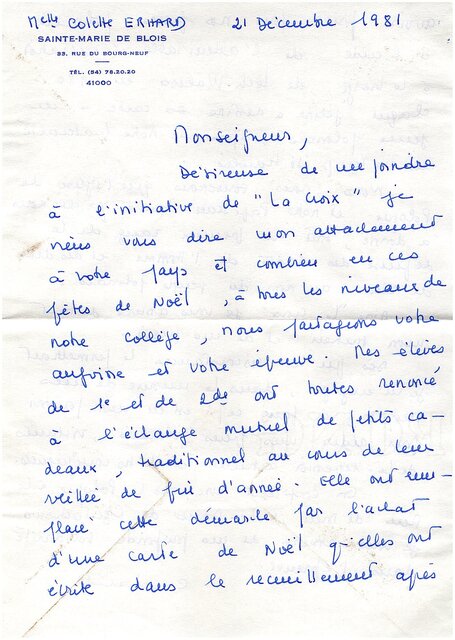 Melle Colette ERHARD 21 Décembre 1981
SAINTE-MARIE DE BLOIS
33, RUE DU BOURG-NEUF
TÉL. (54) 78.20.20
41000
Monseigneur,
Désireuse de me joindre
à l'initiative de "La Croix" je
viens vous dire mon attachement
à votre pays et combien en ces
fêtes de Noël, à tous les niveaux de
notre collège, nous partageons votre
angoisse et votre épreuve. Mes élèves
de 1e et de 2de ont toutes renoncé
à l'échange mutuel de petits ca-
deaux, traditionnel au cours de leur
veillée de fin d'année. Elle ont rem-
placé cette démarche par l'achat
d'une carte de Noël qu'elles ont
écrite dans le recueillement après